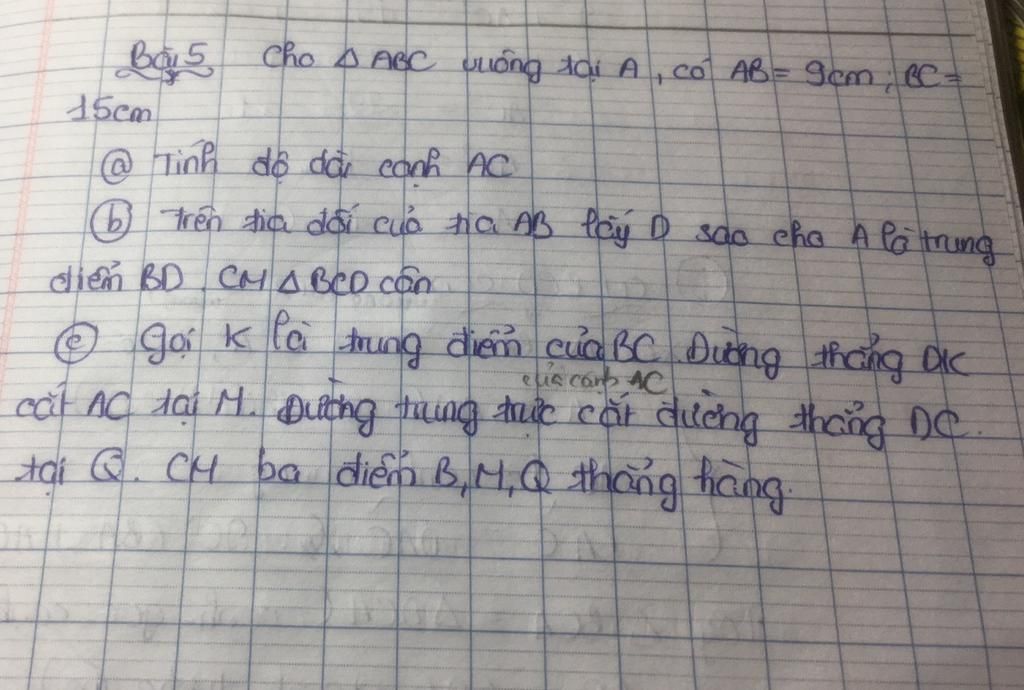 Bài 5 Cho △ ABC vuông tại A, có AB = 9cm; BC =
15cm
ⓐ Tính độ dài cạnh AC
ⓑ Trên tia đối của tia AB lấy D sao cho A là trung
điểm BD. CM △ BCD cân
ⓒ Gọi K là trung điểm của BC. Đường thẳng DK
của cạnh AC
cắt AC tại M. Đường trung trực cắt đường thẳng DC.
tại Q. CM ba điểm B, M, Q thẳng hàng.